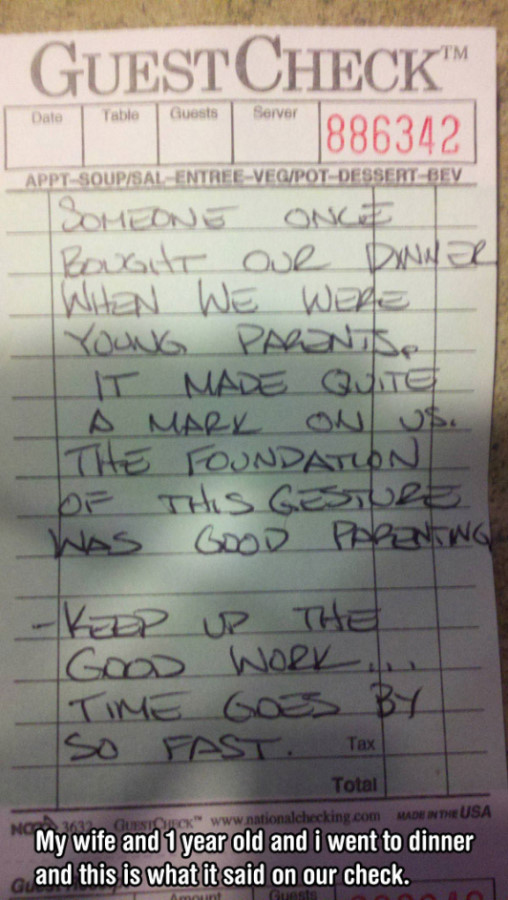 GUESTCHECK™
Date Table Guests Server 886342
APPT-SOUP/SAL-ENTREE-VEG/POT-DESSERT-BEV
SOMEONE ONCE
BOUGHT OUR DINNER
WHEN WE WERE
YOUNG PARENTS.
IT MADE QUITE
A MARK ON US.
THE FOUNDATION
OF THIS GESTURE
WAS GOOD PARENTING
-KEEP UP THE
GOOD WORK...
TIME GOES BY
SO FAST. Tax
Total
3632 GUESTCHECK™ www.nationalchecking.com MADE IN THE USA
My wife and 1 year old and i went to dinner
and this is what it said on our check.
Amount Guests